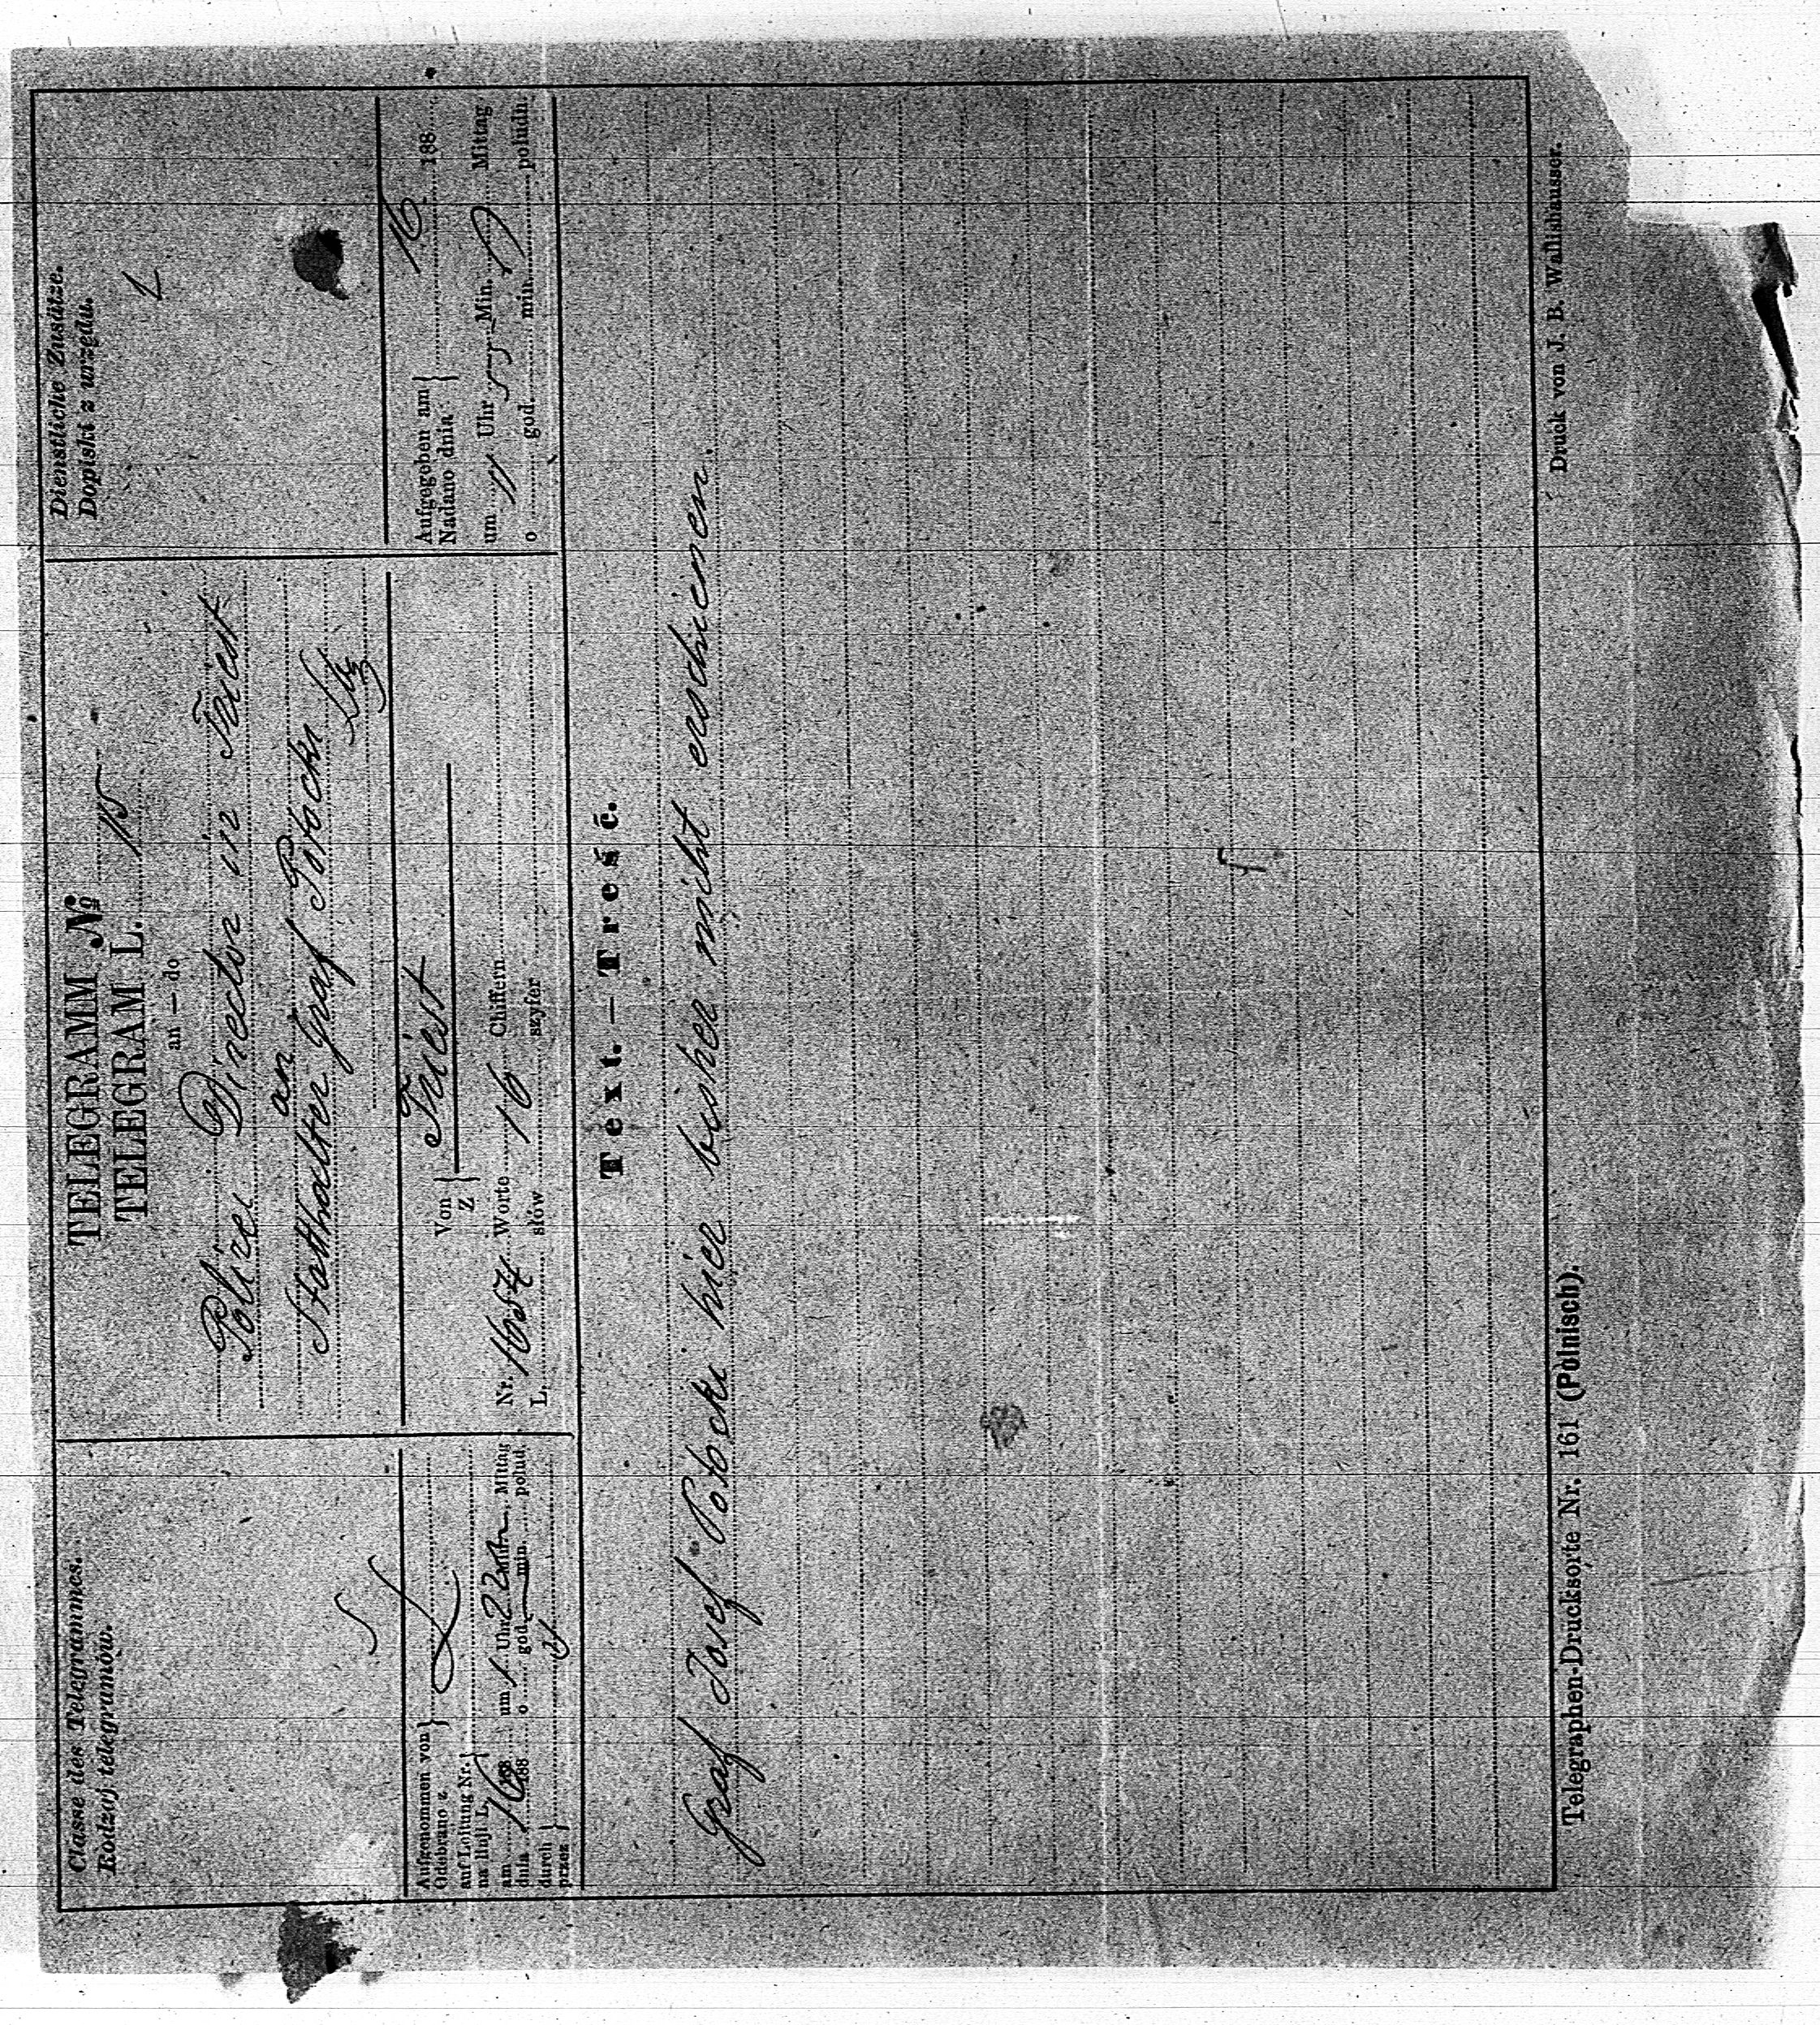 Classe des Telegrammes.
Rodzaj telegramów.
TELEGRAMM № 115
TELEGRAM L.
an — do
Polizei Director in Triest
an
Statthalter Graf Potocki
Dienstliche Zusätze.
Dopiski z urzędu.
Aufgenommen von
Odebrano z
auf Leitung Nr.
na linji L.
am 16 188 um 1 Uhr 22 Min. Mittag
dnia 188 o god. min. połud.
durch
przez
Von Triest
Z
Nr. Worte 16 Chiffern
L. słów szyfer
Aufgegeben am 16. 188
Nadano dnia
um 11 Uhr Min. Mittag
o god. min. połudn.
Text. — Treść.
Graf Josef Potocki hier bisher nicht erschienen.
Telegraphen-Drucksorte Nr. 161 (Polnisch).
Druck von J. B. Wallishausser.